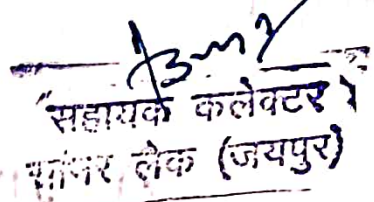 सहायक कलेक्टर
सांभर लेक (जयपुर)